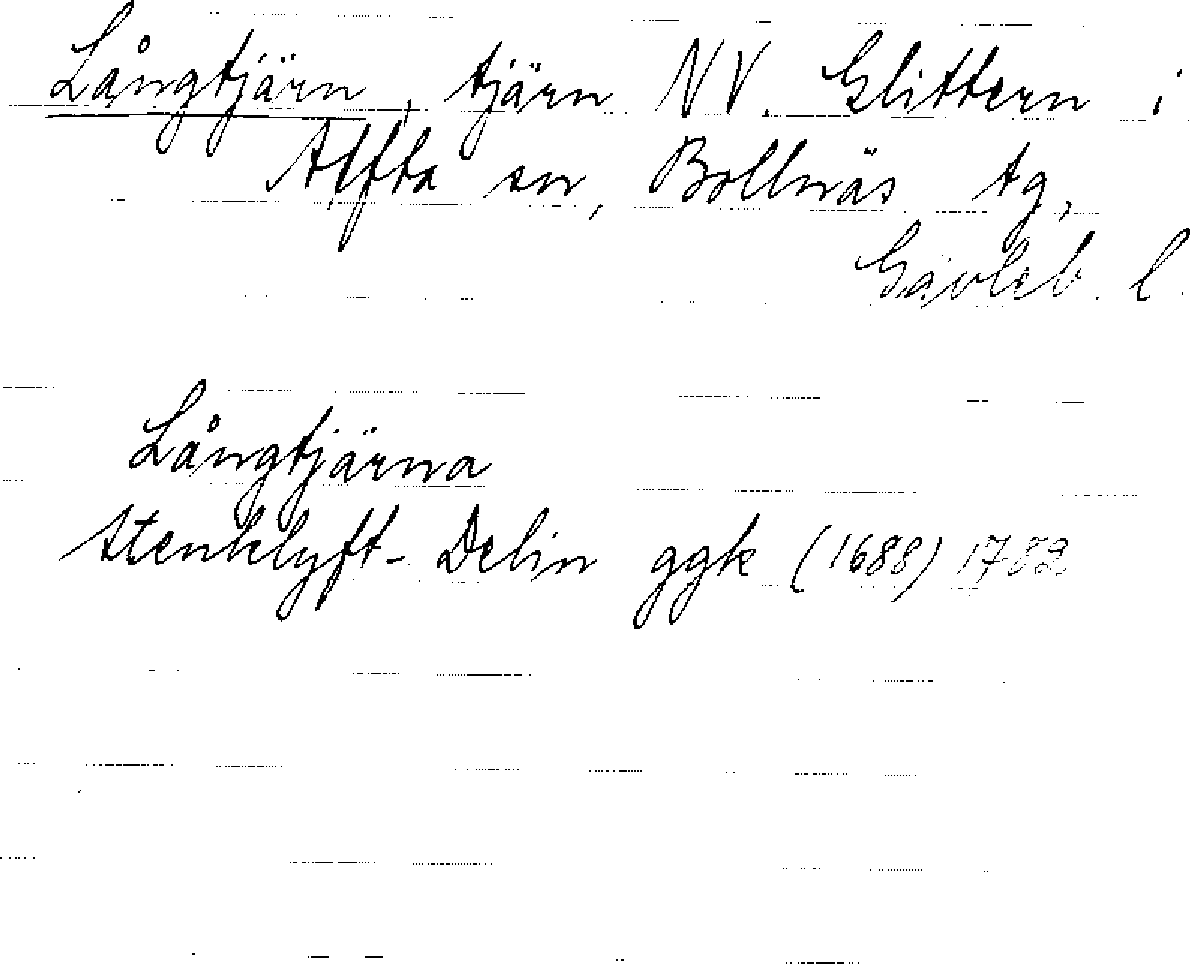 Långtjärn, tjärn NV. Glittern i
Alfta sn, Bollnäs tg,
Gävleb. l.
Långtjärna
Stenklyft- Delin ggk (1688) 1782